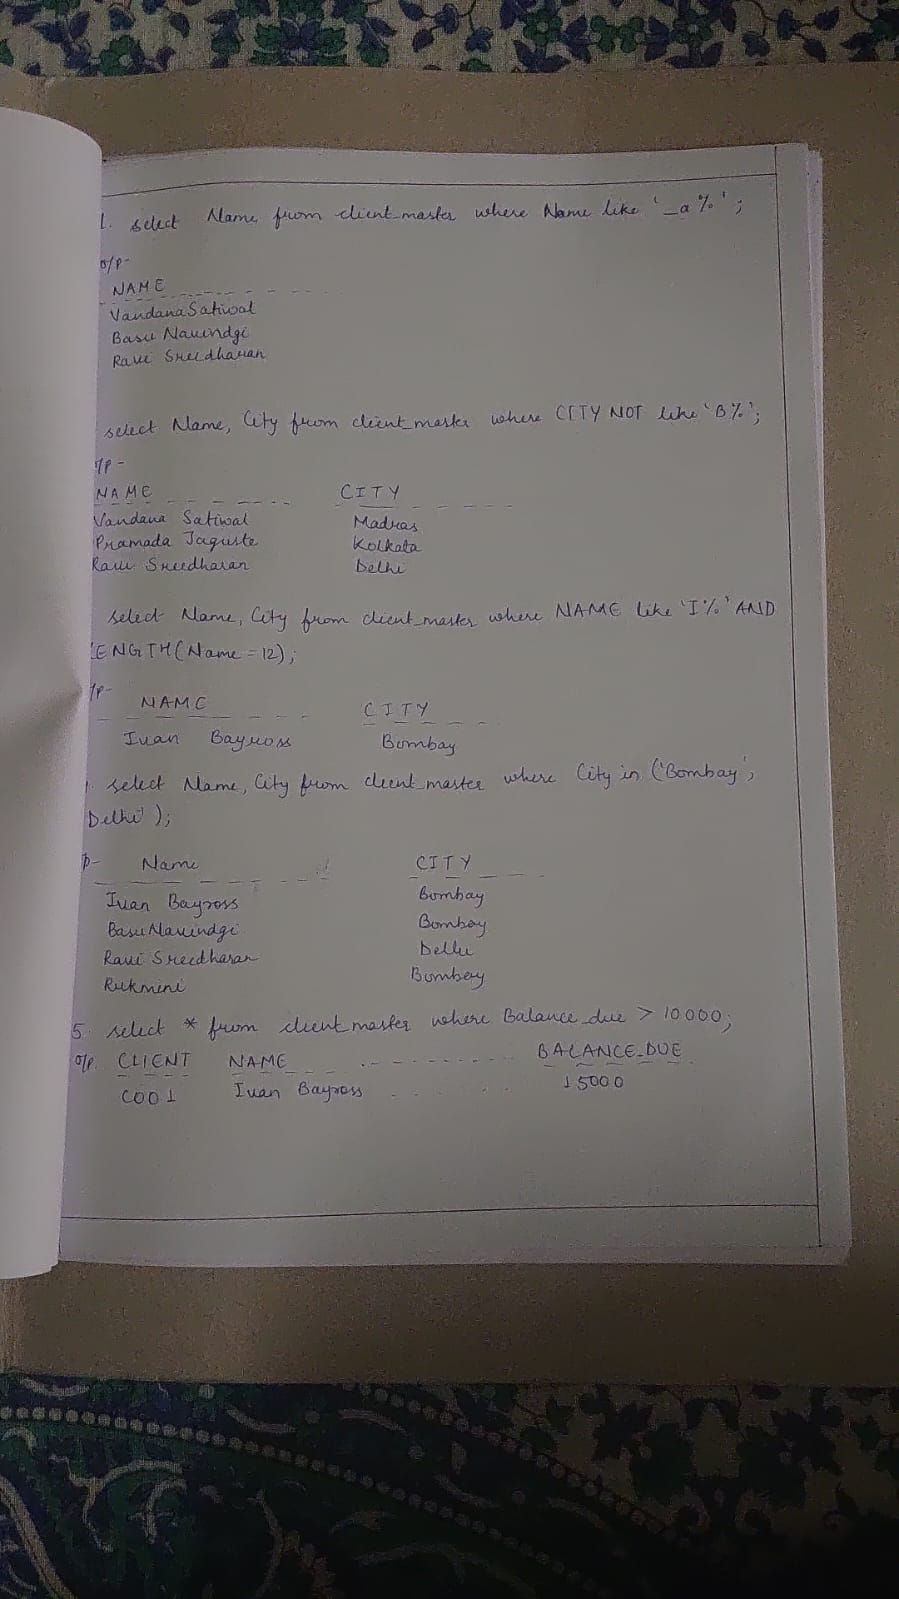 1. select Name from client_master where Name like '_a%';
o/p-
NAME
Vandana Satiwal
Basu Navindgi
Ravi Sreedharan
select Name, City from client_master where CITY NOT like 'B%';
/p-
NAME CITY
Vandana Satiwal Madras
Pramada Jaguste Kolkata
Ravi Sreedharan Delhi
select Name, City from client_master where NAME like 'I%' AND
LENGTH(Name = 12);
/p-
NAME CITY
Ivan Bayross Bombay
select Name, City from client_master where City in ('Bombay',
Delhi');
p- Name CITY
Ivan Bayross Bombay
Basu Navindgi Bombay
Ravi Sreedharan Delhi
Rukmini Bombay
5. select * from client_master where Balance_due > 10000;
o/p. CLIENT NAME BALANCE_DUE
C001 Ivan Bayross 15000